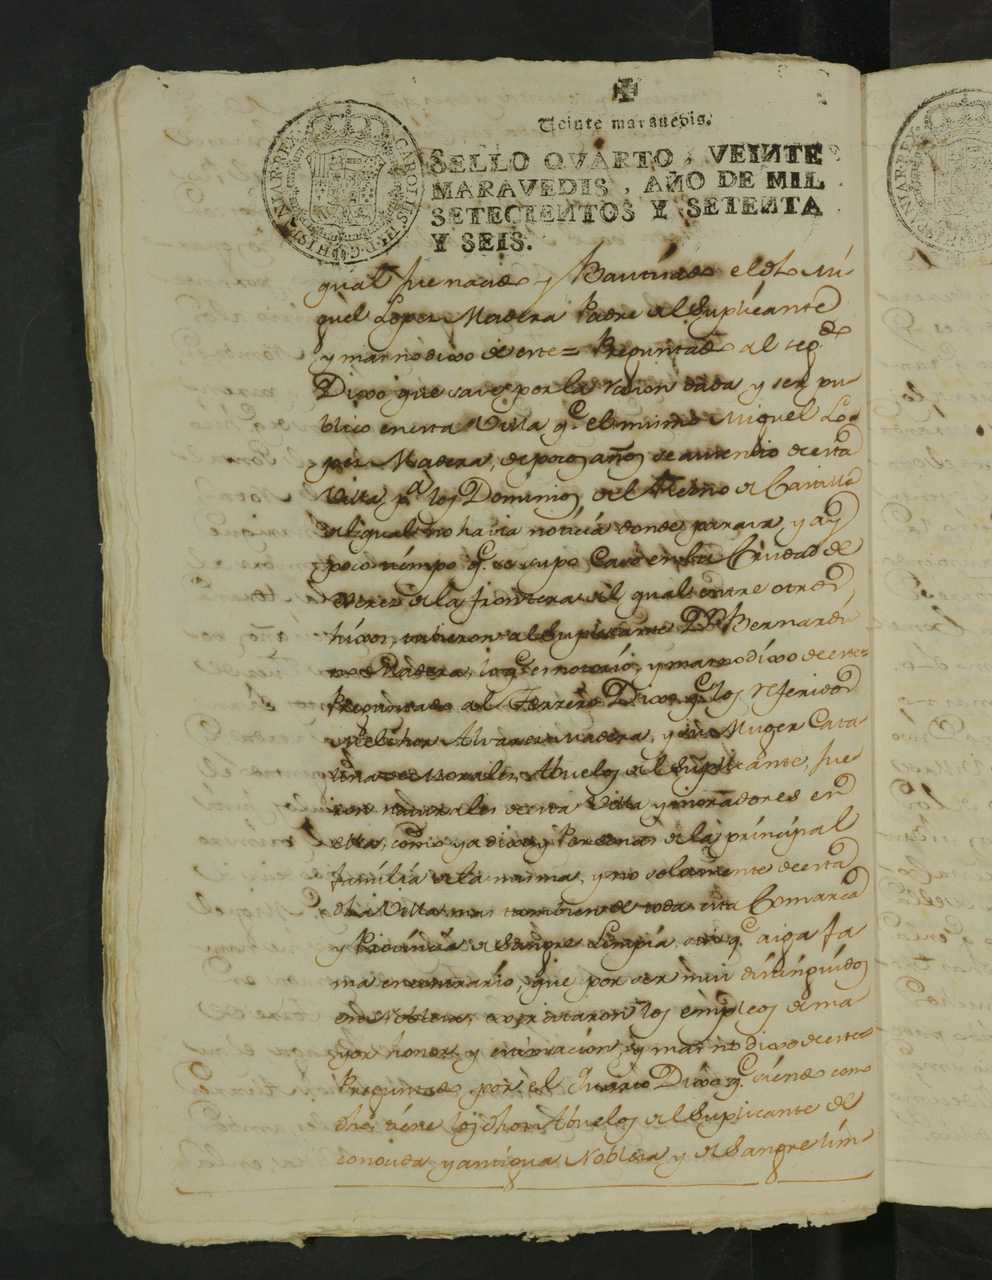 Veinte maravedis.
SELLO QVARTO, VEINTE
MARAVEDIS, AÑO DE MIL
SETECIENTOS Y SETENTA
Y SEIS.
CAROLUS III D G HISPANIAR REX
qual fue nacido y Bautizado el dho Mi-
guel Lopez Madera Padre del Suplicante
y mas no dixo de este = Preguntado al seg.do
Dixo que save por la razon dada y ser pu-
blico en esta Villa q.e el mismo Miguel Lo-
pez Madera, de pocos años se ausentó de esta
Villa p.a los Dominios del Reino de Castilla
del qual no havia noticia donde parava, y ay
poco tiempo q.e se supo Casó en la Ciudad de
Xerez de la frontera del qual entre otros
hixos, tubieron al Suplicante Dn Bernardi-
no Madera, lo q.e es notorio, y mas no dixo de este =
Preguntado al Terzero Dixo q.e los referidos
Melchor Alvarez Madera, y su Muger Cata-
lina de Morales, Abuelos del Suplicante, fue
ron naturales de esta Villa y moradores en
ella, como ya dixo, y Personas de la principal
familia de la misma, y no solamente de esta
dha Villa mas tambien de toda esta Comarca
y Provincia de Sangre Limpia, sin q.e aiga fa
ma en contrario, que por ser mui distinguidos
en Nobleza, exercitaron los empleos de ma
yor honor, y estimacion, y mas no dixo de este =
Preguntado por el Quarto Dixo q.e tiene como
dho tiene los dhos Abuelos del Suplicante de
conocida, y antigua Nobleza y de Sangre lim-